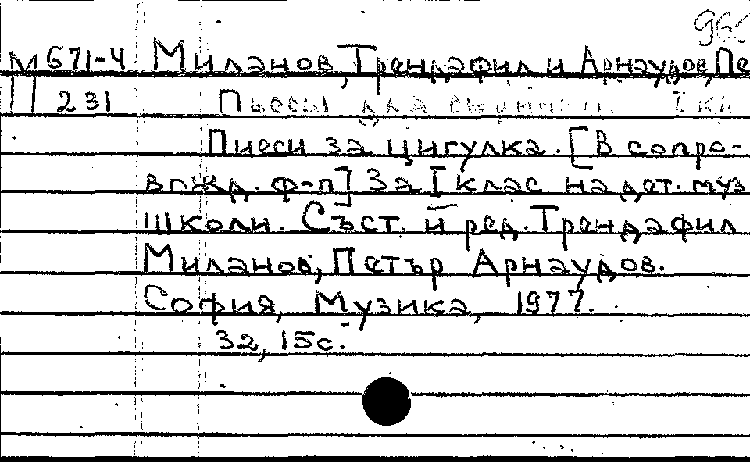 М 671-4 Миланов, Трендафил и Арнаудов, Пе
231 Пьесы для
Пиеси за цигулка. [В сопро-
вожд. ф-п] За I клас на дет. муз
школи. Съст. и ред. Трендафил
Миланов, Петър Арнаудов.
София, Музика, 1977.
32, 15с.